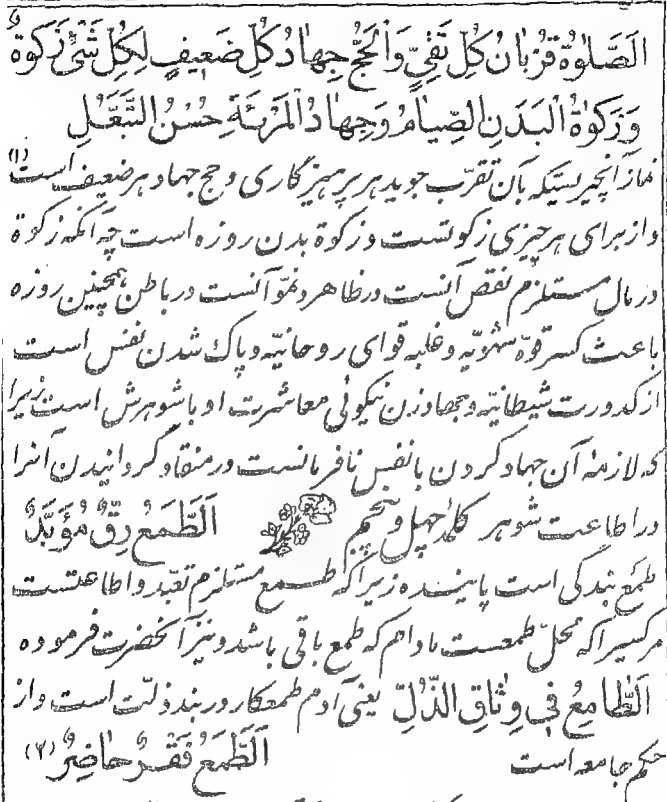 اَلصَّلوٰةُ قُرْبٰانُ كُلِّ تَقِيٍّ وَالْحَجُّ جِهٰادُ كُلِّ ضَعيفٍ لِكُلِّ شَيْءٍ زَكوٰةٌ
وَزَكوٰةُ الْبَدَنِ الصِّيٰامُ وَجِهٰادُ الْمَرْئَةِ حُسْنُ التَّبَعُّلِ
نماز آنچیزیستیکه بآن تقرّب جوید هر پرهیزگاری و حج جهاد هر ضعیف است (۱)
و از برای هر چیزی زکوتست و زکوة بدن روزه است چه آنکه زکوة
در مال مستلزم نقص آنست در ظاهر و نموّ آنست در باطن همچنین روزه
باعث کسر قوّه شهویّه و غلبه قوای روحانیّه و پاک شدن نفس است
از کدورت شیطانیّه و جهاد زن نیکوئی معاشرت او با شوهرش است زیرا
که لازمهٔ آن جهاد کردن با نفس نافرمانست در منقاد گردانیدن آنرا
در اطاعت شوهر کلمهٔ چهل و پنجم اَلطَّمَعُ رِقٌّ مُؤَبَّدٌ
طمع بندگی است پاینده زیرا که طمع مستلزم تعبّد و اطاعتست
مر کسیرا که محلّ طمعست مادام که طمع باقی باشد و نیز آنحضرت فرموده
اَلطّٰامِعُ فی وِثٰاقِ الذُّلِّ یعنی آدم طمعکار در بند ذلّت است و از
حکم جامعه است اَلطَّمَعُ فَقْرٌ حٰاضِرٌ (۲)